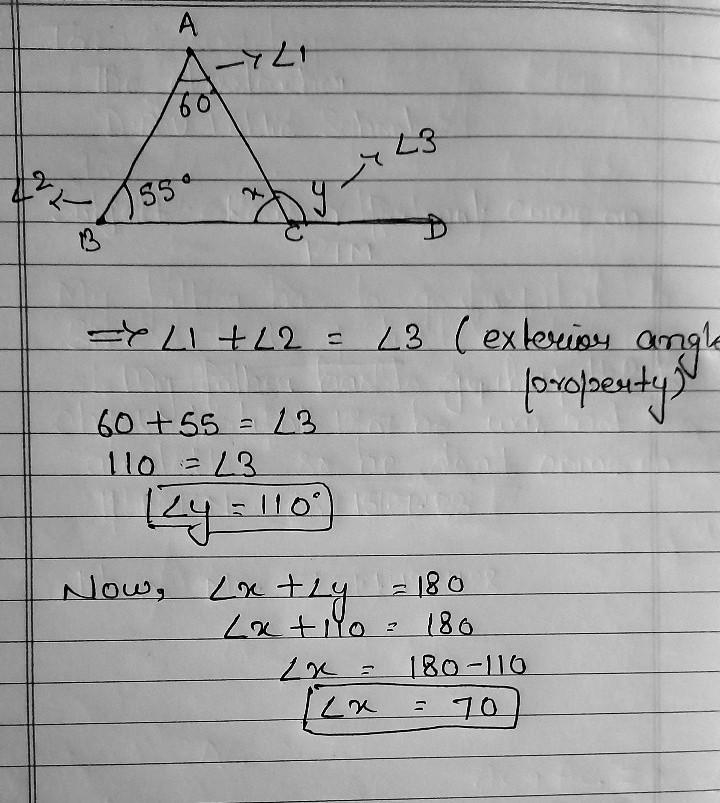 A
∠1
60°
∠3
∠2
55°
x
y
B
C
D
⇒ ∠1 + ∠2 = ∠3 (exterior angle
property)
60 + 55 = ∠3
110 = ∠3
∠y = 110°
Now, ∠x + ∠y = 180
∠x + 110 = 180
∠x = 180 - 110
∠x = 70